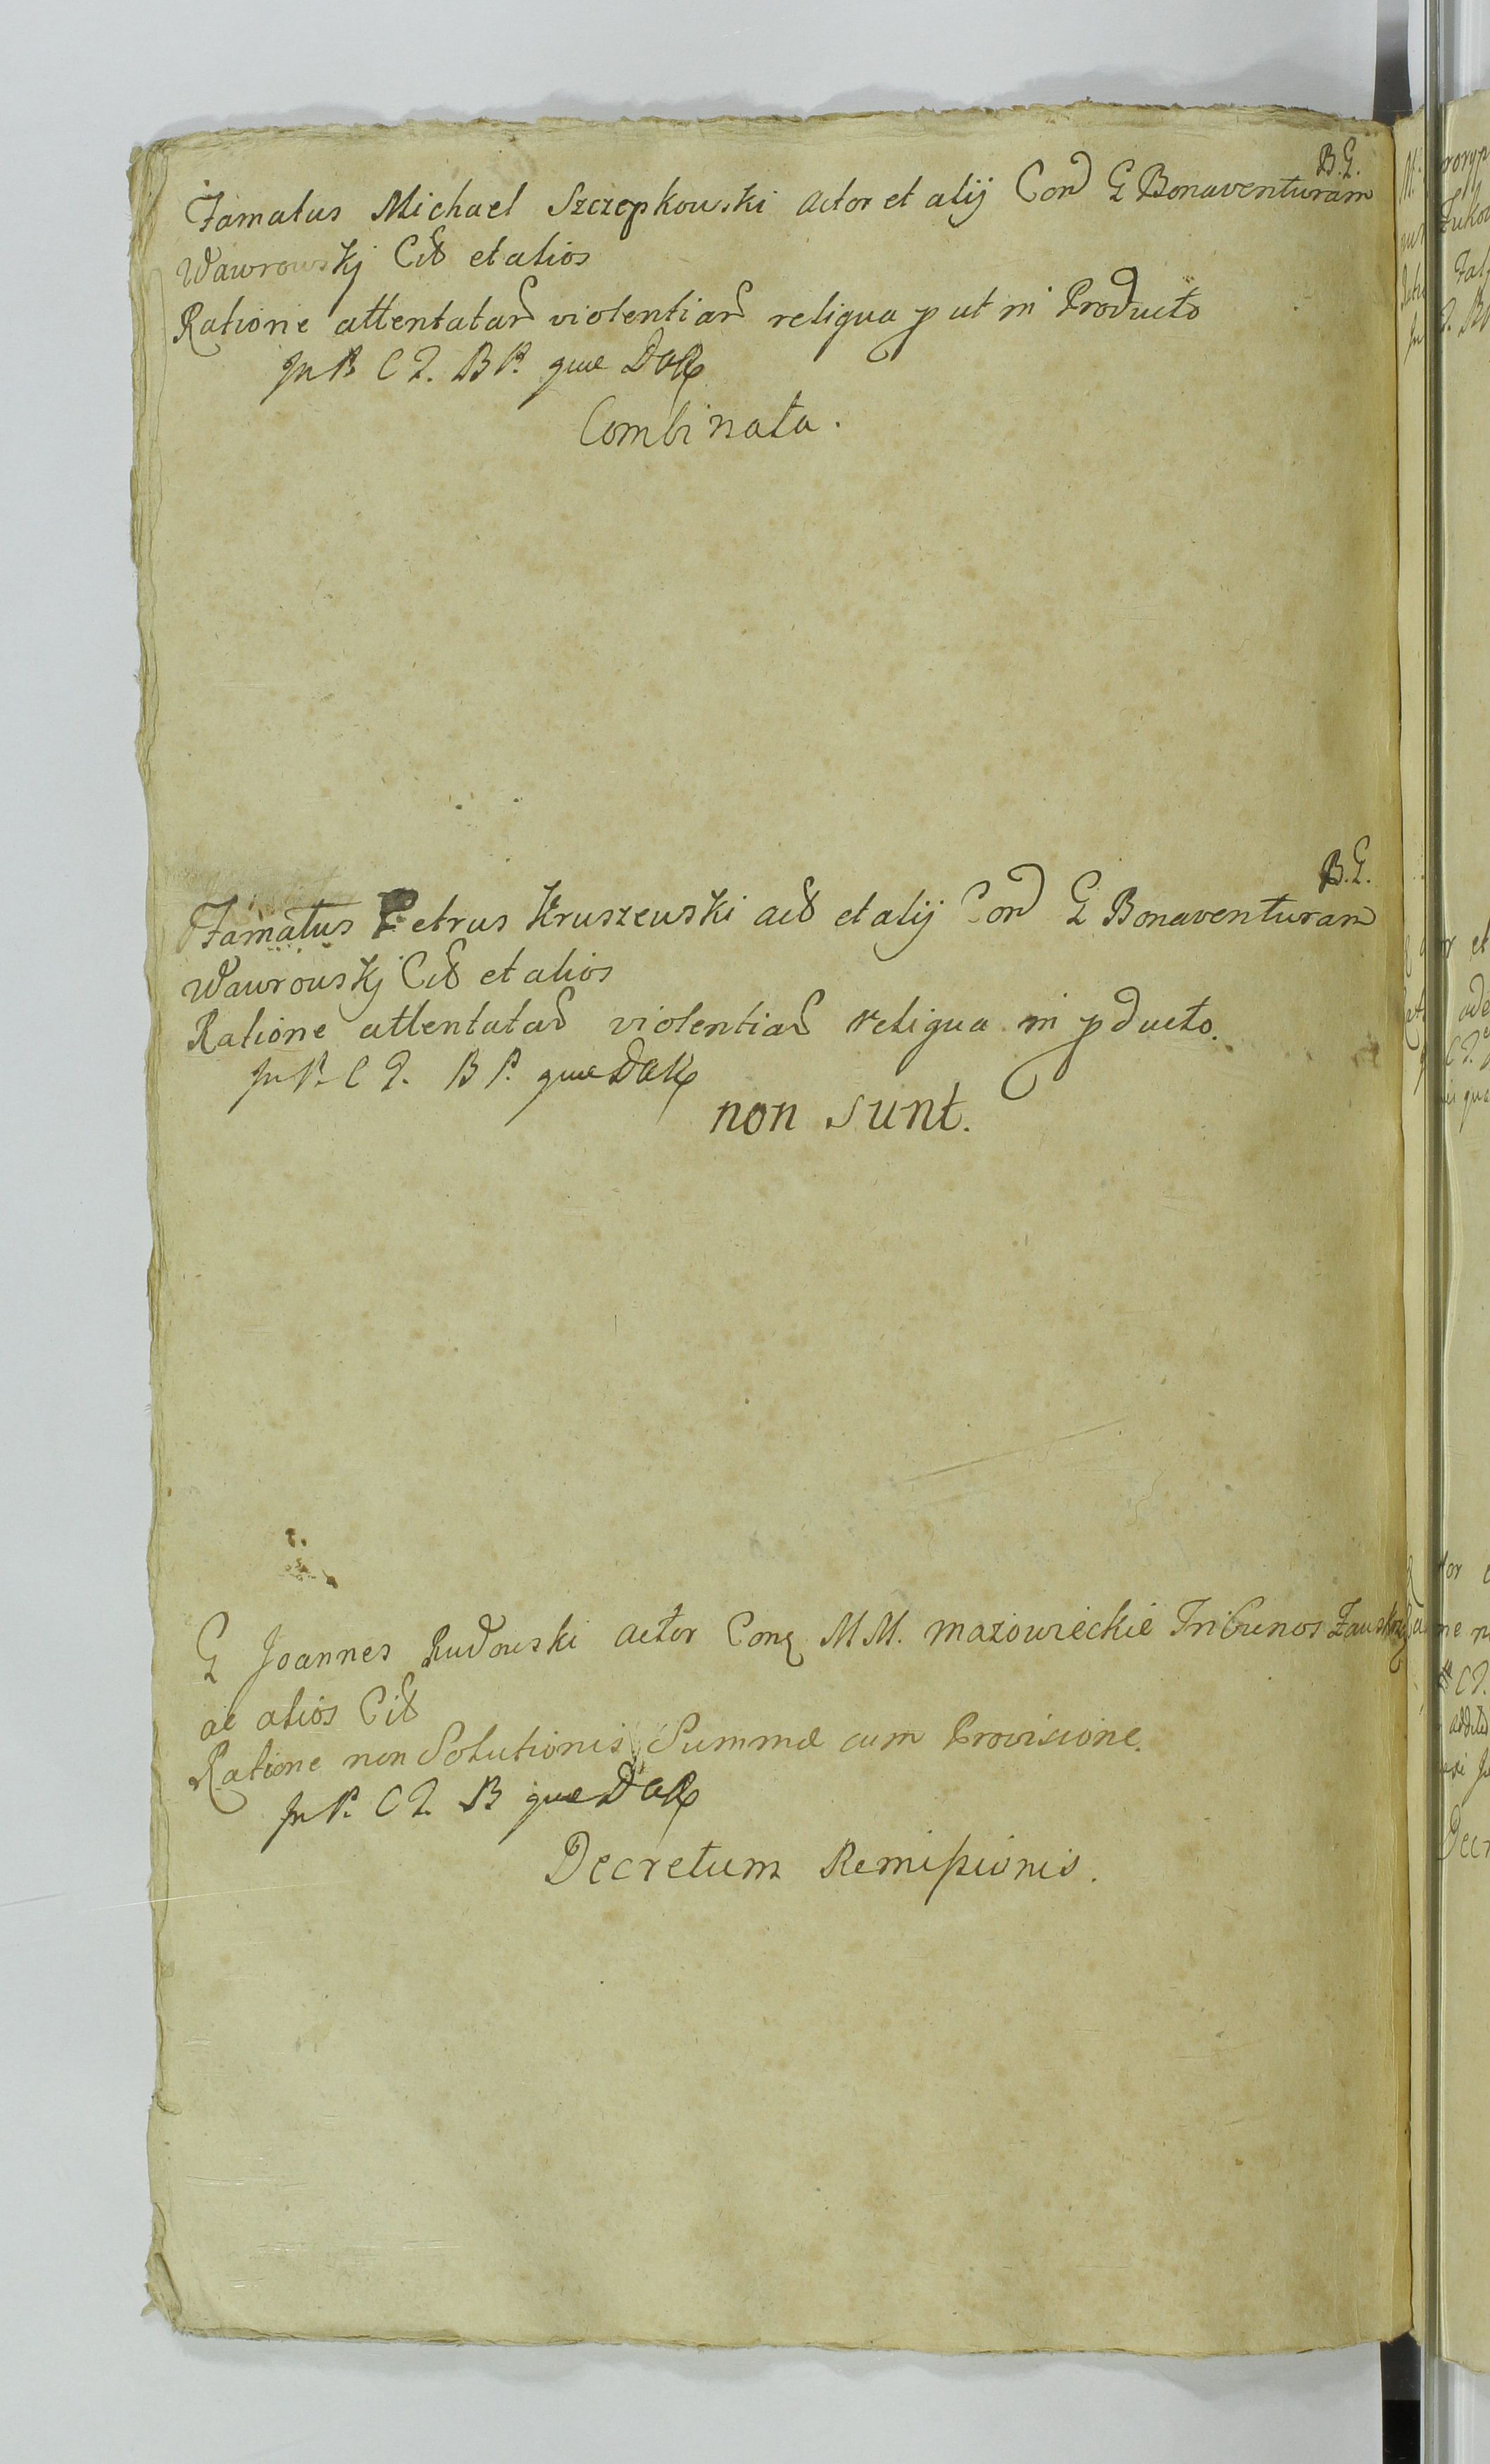 B. G.
Famatus Michael Szczepkowski actor et alij Con G Bonaventuram
Wawrowskj Cit et alios
Ratione attentatar violentiar reliqua p ut in Producto
In P. C T. B P. quae DOR
Combinata.
B. G.
Famatus Petrus Kruszewski act et alij Con G Bonaventuram
Wawrowskj Cit et alios
Ratione attentatar violentiar reliqua in pducto.
In P. C T. B P. quae DOR
non sunt.
G Joannes Rudowski actor Conq MM. mazowieckie Tribunos
ac alios Cit
Ratione non Solutionis Summae cum Provisione.
In P. C T. B quae DOR
Decretum Remissionis.